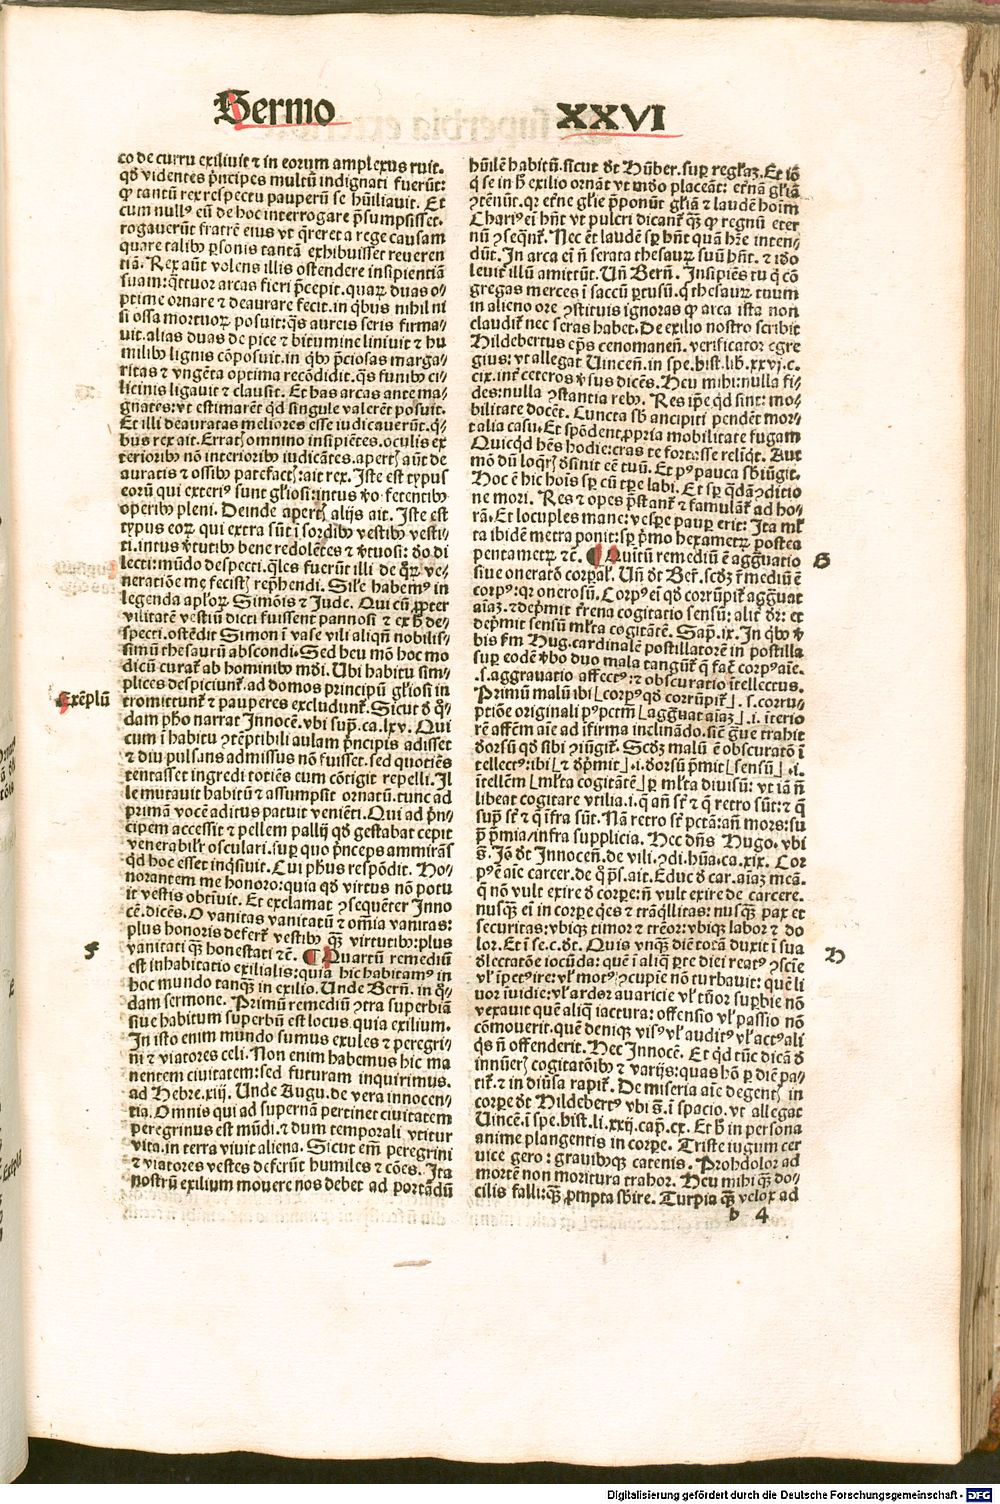 Sermo XXVI
co de curru exiliuit ⁊ in eorum amplexus ruit.
qḋ videntes pͥncipes multū indignati fuerūt:
ꝙ tantū rex respectu pauperū se hūiliauit. Et
cum nullꝰ eū de hoc interrogare p̄sumpsisset.
rogauerūt fratrē eius vt q̄reret a rege causam
quare talibꝰ ꝑsonis tantā exhibuisset reueren
tiā. Rex aūt volens illis ostendere insipientiā
suam: qͣttuor arcas fieri p̄cepit. quaꝝ duas o⸗
ptime ornare ⁊ deaurare fecit. in qͥbus nihil ni
si ossa mortuoꝝ posuit: qͣs aureis seris firma⸗
uit. alias duas de pice ⁊ bitumine liniuit ⁊ hu
milibꝰ lignis cōposuit. in qͥbꝰ p̄ciosas marga⸗
ritas ⁊ vngēta optima recōdidit. qͣs funibꝰ ci⸗
licinis ligauit ⁊ clausit. Et has arcas ante ma⸗
gnates: vt estimarēt qͥd singule valerēt posuit.
Et illi deauratas meliores esse iudicauerūt. qͥ⸗
bus rex ait. Erratis omnino insipiētes. oculis ex
terioribꝰ nō interioribꝰ iudicātes. apertis aūt de
auratis ⁊ ossibꝰ patefactis: ait rex. Iste est typus
eorū qui exteriꝰ sunt gl̄iosi: intus v̊o fetentibꝰ
operibꝰ pleni. Deinde apertis alijs ait. Iste est
typus eoꝝ qui extra sūt i sordibꝰ vestibꝰ vesti⸗
ti. intus v̓tutibꝰ bene redolētes ⁊ v̓tuosi: ꝺo di
lecti: mūdo despecti. q̄les fuerūt illi de qͦꝝ ve⸗
neratiōe me fecistis rep̄hendi. Sil̓e habemꝰ in
legenda apl̓oꝝ Simōis ⁊ Iude. Qui cū ꝓpter
vilitatē vestiū dicti fuissent pannosi ⁊ ex h̓ de⸗
specti. ostēdit Simon ī vase vili aliqn̄ nobilis⸗
simū thesaurū abscondi. Sed heu mō hoc mo
dicū curat̓ ab hominibꝰ mūdi. Ubi habitu sim⸗
plices despiciunt̓. ad domos principū gl̄iosi in
tromittunt̓ ⁊ pauperes excludunt̓. Sicut ꝺ qͦ⸗
Exēplū
dam ph̓o narrat Innocē. vbi sup̄. ca. lxv. Qui
cum ī habitu ꝯtēptibili aulam pͥncipis adisset
⁊ diu pulsans admissus nō fuisset. sed quotiēs
tentasset ingredi totiēs eum cōtigit repelli. Il
le mutauit habitū ⁊ assumpsit ornatū. tunc ad
primā vocē aditus patuit veniēti. Qui ad pͥn⸗
cipem accessit ⁊ pellem pallij qḋ gestabat cepit
venerabilir̓ osculari. suꝑ quo pͥnceps ammirās
qͥd hoc esset inqͥsiuit. Cui ph̓us respōdit. Ho⸗
norantem me honoro: quia qḋ virtus nō potu
it vestis obtinuit. Et exclamat ꝯsequēter Inno
cē. dicēs. O vanitas vanitatū ⁊ om̄ia vanitas:
plus honoris defert̓ vestibꝰ qꝫ virtutibꝰ: plus
F
vanitati qꝫ honestati ⁊c̄. ¶ Quartū remediū
est inhabitatio exilialis: quia hic habitamꝰ in
hoc mundo tanqꝫ in exilio. Unde Bern̄. in qͦ⸗
dam sermone. Primū remediū ꝯtra superbiā
siue habitum superbū est locus. quia exilium.
In isto enim mundo sumus exules ⁊ peregri⸗
ni ⁊ viatores celi. Non enim habemus hic ma
nentem ciuitatem: sed futuram inquirimus.
ad Hebre. xiij. Unde Augu. de vera innocen⸗
tia. Omnis qui ad supernā pertinet ciuitatem
peregrinus est mūdi. ⁊ dum temporali vtitur
vita. in terra viuit aliena. Sicut em̄ peregrini
⁊ viatores vestes deferūt humiles ⁊ cōes. Ita
nostrū exilium mouere nos debet ad portādū
hūilē habitū. sicut ꝺt Hūber. suꝑ regl̓aꝫ. Et iō
q̓ se in h̓ exilio ornāt vt mūdo placeāt: et̓nā gl̄iā
ꝯtēnūt. qr et̓ne gl̄ie p̄ponūt gl̄iā ⁊ laudē hoīm
Chariꝰ ei hn̄t vt pulcri dicant̓ qꝫ ꝙ regnū eter
nū ꝯseqnt̓. Nec ēt laudē sꝑ hn̄t quā hr̄e inten⸗
dūt. In arca ei n̄ serata thesauꝝ suū hn̄t. ⁊ iḋo
leuit̓ illū amittūt. Un̄ Bern̄. Insipiēs tu q̓ cō
gregas merces i saccū ꝑtusū. q̓ thesauꝝ tuum
in alieno ore ꝯstituis ignoras ꝙ arca ista non
claudit̓ nec seras habet. De exilio nostro scribit
Hildebertus ep̄s cenomaneñ. versificator egre
gius: vt allegat Uinceñ. in spe. hist. lib. xxvj. c.
cix. int̓ ceteros v̓sus dicēs. Heu mihi: nulla fi⸗
des: nulla ꝯstantia rebꝰ. Res ip̄e qͥd sint: mo⸗
bilitate docēt. Cuncta sb̓ ancipiti pendēt mor⸗
talia casu. Et spōdent ꝓpria mobilitate fugam
Quicqͥd hēs hodie: cras te fortasse relinqt̓. Aut
mō dū loqͥris ꝺsinit cē tuū. Et pꝰ pauca sb̓iūgit.
Hoc ē hic hoīs sꝑ cū tꝑe labi. Et sꝑ qͣdā ꝯditio
ne mori. Res ⁊ opes p̄stant̓ ⁊ famulāt̓ ad ho⸗
rā. Et locuples mane: vesꝑe pauꝑ erit: Ita ml̓
ta ibidē metra ponit: sꝑ pͥmo hexametꝝ postea
pentametꝝ ⁊c̄. ¶ Quītū remediū ē aggͣuatio
G
siue oneratō corꝑal̓. Un̄ ꝺt Ber̄. scḋꝫ r̄mediū ē
corpꝰ: qr onerosū. Corpꝰ ei qḋ corrūpit̓ aggͣuat
aīaꝫ. ⁊ dep̄mit t̓rena cogitatio sensū: alit̓ ꝺr: et
dep̄mit sensū ml̓ta cogitātē. Sap̄. ix. In qͥbꝰ v̓
bis fm̄ Hug. cardinalē postillatorē in postilla
suꝑ eodē v̓bo duo mala tangūt̓ q̄ fac̓ corpꝰ aīe.
.s. aggrauatio affectꝰ: ⁊ obscuratio ītellectus.
Primū malū ibi ⌊corpꝰ qḋ corrūpit̓⌋ .s. corru⸗
ptiōe originali pꝰ pctm̄ ⌊aggͣuat aīaꝫ⌋ .i. īterio
rē affēm aīe ad īfirma inclinādo. sic̄ gͣue trahit
ꝺorsū qḋ sibi ꝯiūgit̓. Scḋꝫ malū ē obscuratō ī
tellectꝰ: ibi ⌊⁊ ꝺp̄mit⌋ .i. ꝺorsū p̄mit ⌊sensū⌋ .i.
ītellēm ⌊ml̓ta cogitātē⌋ ꝑ ml̓ta diuisū: vt iā n̄
libeat cogitare vtilia. i. q̄ an̄ st̓ ⁊ q̄ retro sūt: ⁊ q̄
supͣ st̓ ⁊ q̄ īfra sūt. Nā retro st̓ pctā: an̄ mors: su
pͣ p̄mia: infra supplicia. Hec dn̄s Hugo. vbi
s̄. Iō ꝺt Innoceñ. de vili. ꝯdi. hūa. ca. xix. Cor
pꝰ ē aīe carcer. de q̊ p̄s. ait. Educ ꝺ car. aīaꝫ meā.
q̄ nō vult exire ꝺ corꝑe: n̄ vult exire de carcere.
nusqꝫ ei in corꝑe qͥes ⁊ trāqͥllitas: nusqꝫ pax et
securitas: vbiqꝫ timor ⁊ tremor: vbiqꝫ labor ⁊ do
H
lor. Et i se. c. ꝺt. Quis vnqꝫ diē totā duxit ī sua
ꝺlectatōe iocūdā: quē ī aliqͣ ꝑte diei reatꝰ ꝯsciē
vl̓ īpetꝰ ire: vl̓ motꝰ ꝯcupīe nō turbauit: quē li
uor īuidie: vl̓ ardor auaricie vl̓ tūor suꝑbie nō
vexauit quē aliqͣ iactura: offensio vl̓ passio nō
cōmouerit. quē denique visꝰ vl̓ auditꝰ vl̓ actꝰ ali
qͥs n̄ offenderit. Hec Innocē. Et qͥd tūc dicā ꝺ
innūeris cogitatōibꝰ ⁊ varijs: quas hō ꝑ diē pa⸗
tit̓. ⁊ in diūsa rapit̓. De miseria aīe degentis in
corꝑe ꝺt Hildebertꝰ vbi s̄. ī spacio. vt allegat
Uincē. ī spe. hist. li. xxij. cap̄. cx. Et h̓ in persona
anime plangentis in corꝑe. Triste iugum cer
uice gero: grauibꝰqꝫ catenis. Prohdolor ad
mortē non moritura trahor. Heu mihi qꝫ do⸗
cilis falli: qꝫ ꝓmpta sb̓ire. Turpia qꝫ velox ad
b 4
Digitalisierung gefördert durch die Deutsche Forschungsgemeinschaft - DFG